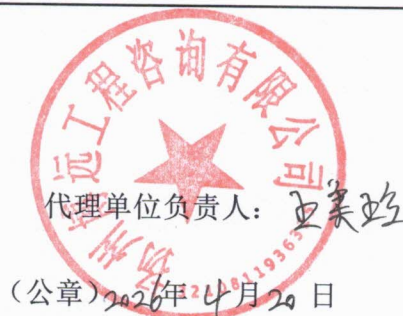 扬州 远工程咨询有限公司
代理单位负责人：王美玲
（公章）2026年4月20日